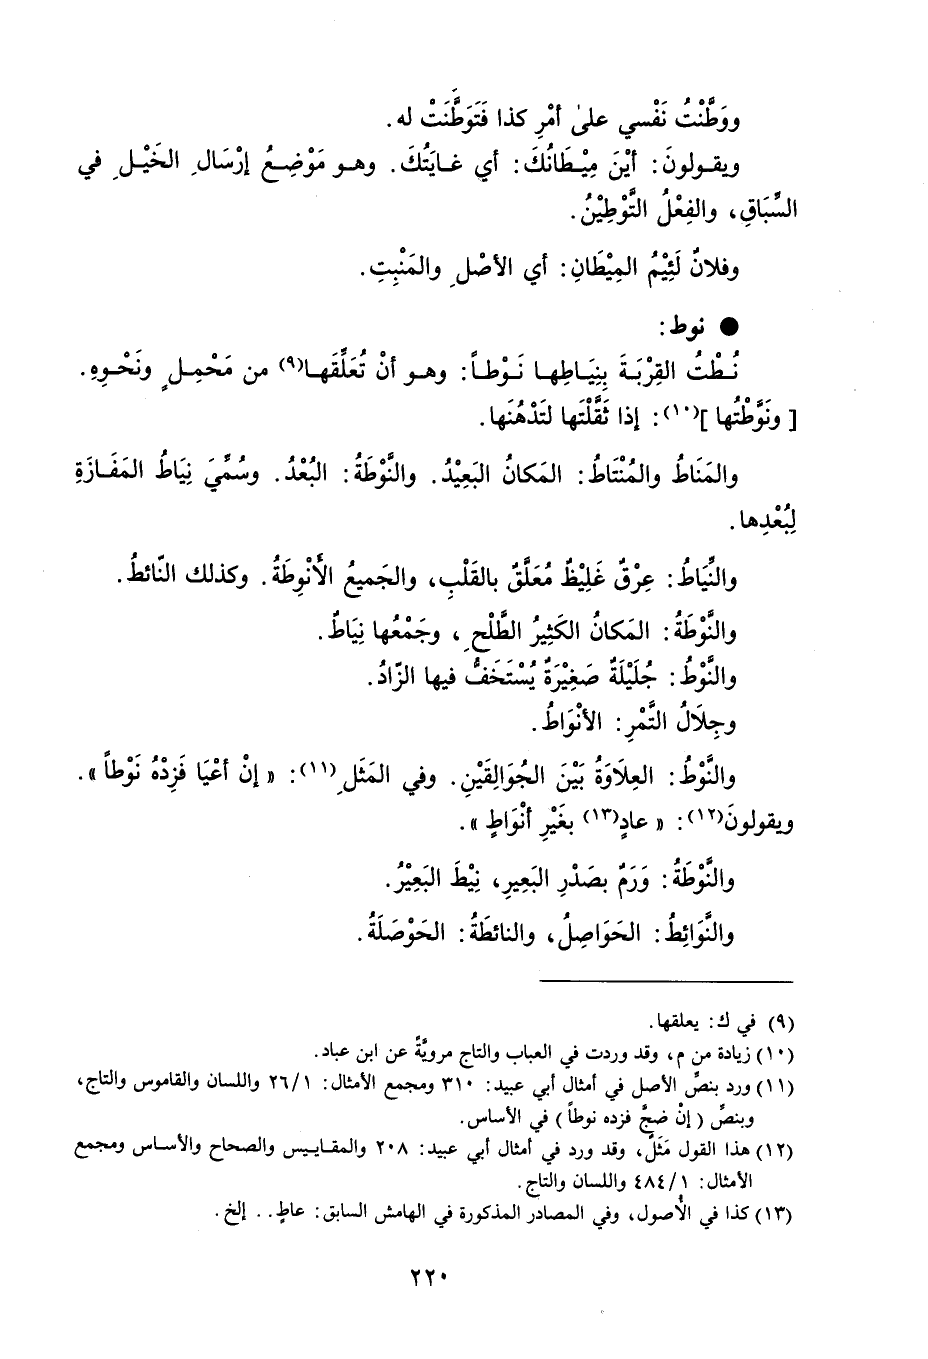 ووَطَّنْتُ نَفْسي علىٰ أمْرِ كذا فَتَوَطَّنَتْ له.
ويقـولونَ: أيْنَ مِيْـطَانُكَ: أي غـايَتُكَ. وهـو مَوْضِـعُ إرْسَالِ الخَيْـلِ في
السِّبَاقِ، والفِعْلُ التَّوْطِيْنُ.
وفلانٌ لَئِيْمُ المِيْطَانِ: أي الأصْلِ والمَنْبِتِ.
● نوط:
نُـطْتُ القِرْبَـةَ بِنِيَـاطِهـا نَـوْطـاً: وهـو أنْ تُعَلِّقَهـا(٩) من مَحْمِـلٍ ونَحْـوِهِ.
[ ونَوَّطْتُها ](١٠): إذا ثَقَّلْتَها لتَدْهُنَها.
والمَنَاطُ والمُنْتَاطُ: المَكانُ البَعِيْدُ. والنَّوْطَةُ: البُعْدُ. وسُمِّيَ نِيَاطُ المَفَـازَةِ
لِبُعْدِها.
والنِّيَاطُ: عِرْقٌ غَلِيظٌ مُعَلَّقٌ بالقَلْبِ، والجَميعُ الأنْوِطَةُ. وكذلك النّائطُ.
والنَّوْطَةُ: المَكانُ الكَثِيرُ الطَّلْحِ، وجَمْعُها نِيَاطٌ.
والنَّوْطُ: جُلَيْلَةٌ صَغِيْرَةٌ يُسْتَخَفُّ فيها الزّادُ.
وجِلَالُ التَّمْرِ: الأنْوَاطُ.
والنَّوْطُ: العِلَاوَةُ بَيْنَ الجُوَالِقَيْنِ. وفي المَثَلِ(١١): « إنْ أعْيَا فَزِدْهُ نَوْطاً ».
ويقولونَ(١٢): « عادٍ(١٣) بغَيْرِ أنْوَاطٍ ».
والنَّوْطَةُ: وَرَمٌ بصَدْرِ البَعِيرِ، نِيْطَ البَعِيْرُ.
والنَّوَائِطُ: الحَوَاصِلُ، والنائطَةُ: الحَوْصَلَةُ.
(٩) في ك: يعلقها.
(١٠) زيادة من م، وقد وردت في العباب والتاج مرويَّةً عن ابن عباد.
(١١) ورد بنصِّ الأصل في أمثال أبي عبيد: ٣١٠ ومجمع الأمثال: ٢٦/١ واللسان والقاموس والتاج،
وبنصِّ ( إنْ ضجَّ فزده نوطاً ) في الأساس.
(١٢) هذا القول مَثَلٌ، وقد ورد في أمثال أبي عبيد: ٢٠٨ والمقـاييس والصحاح والأسـاس ومجمع
الأمثال: ٤٨٤/١ واللسان والتاج.
(١٣) كذا في الأُصول، وفي المصادر المذكورة في الهامش السابق: عاطٍ.. إلخ.
٢٢٠